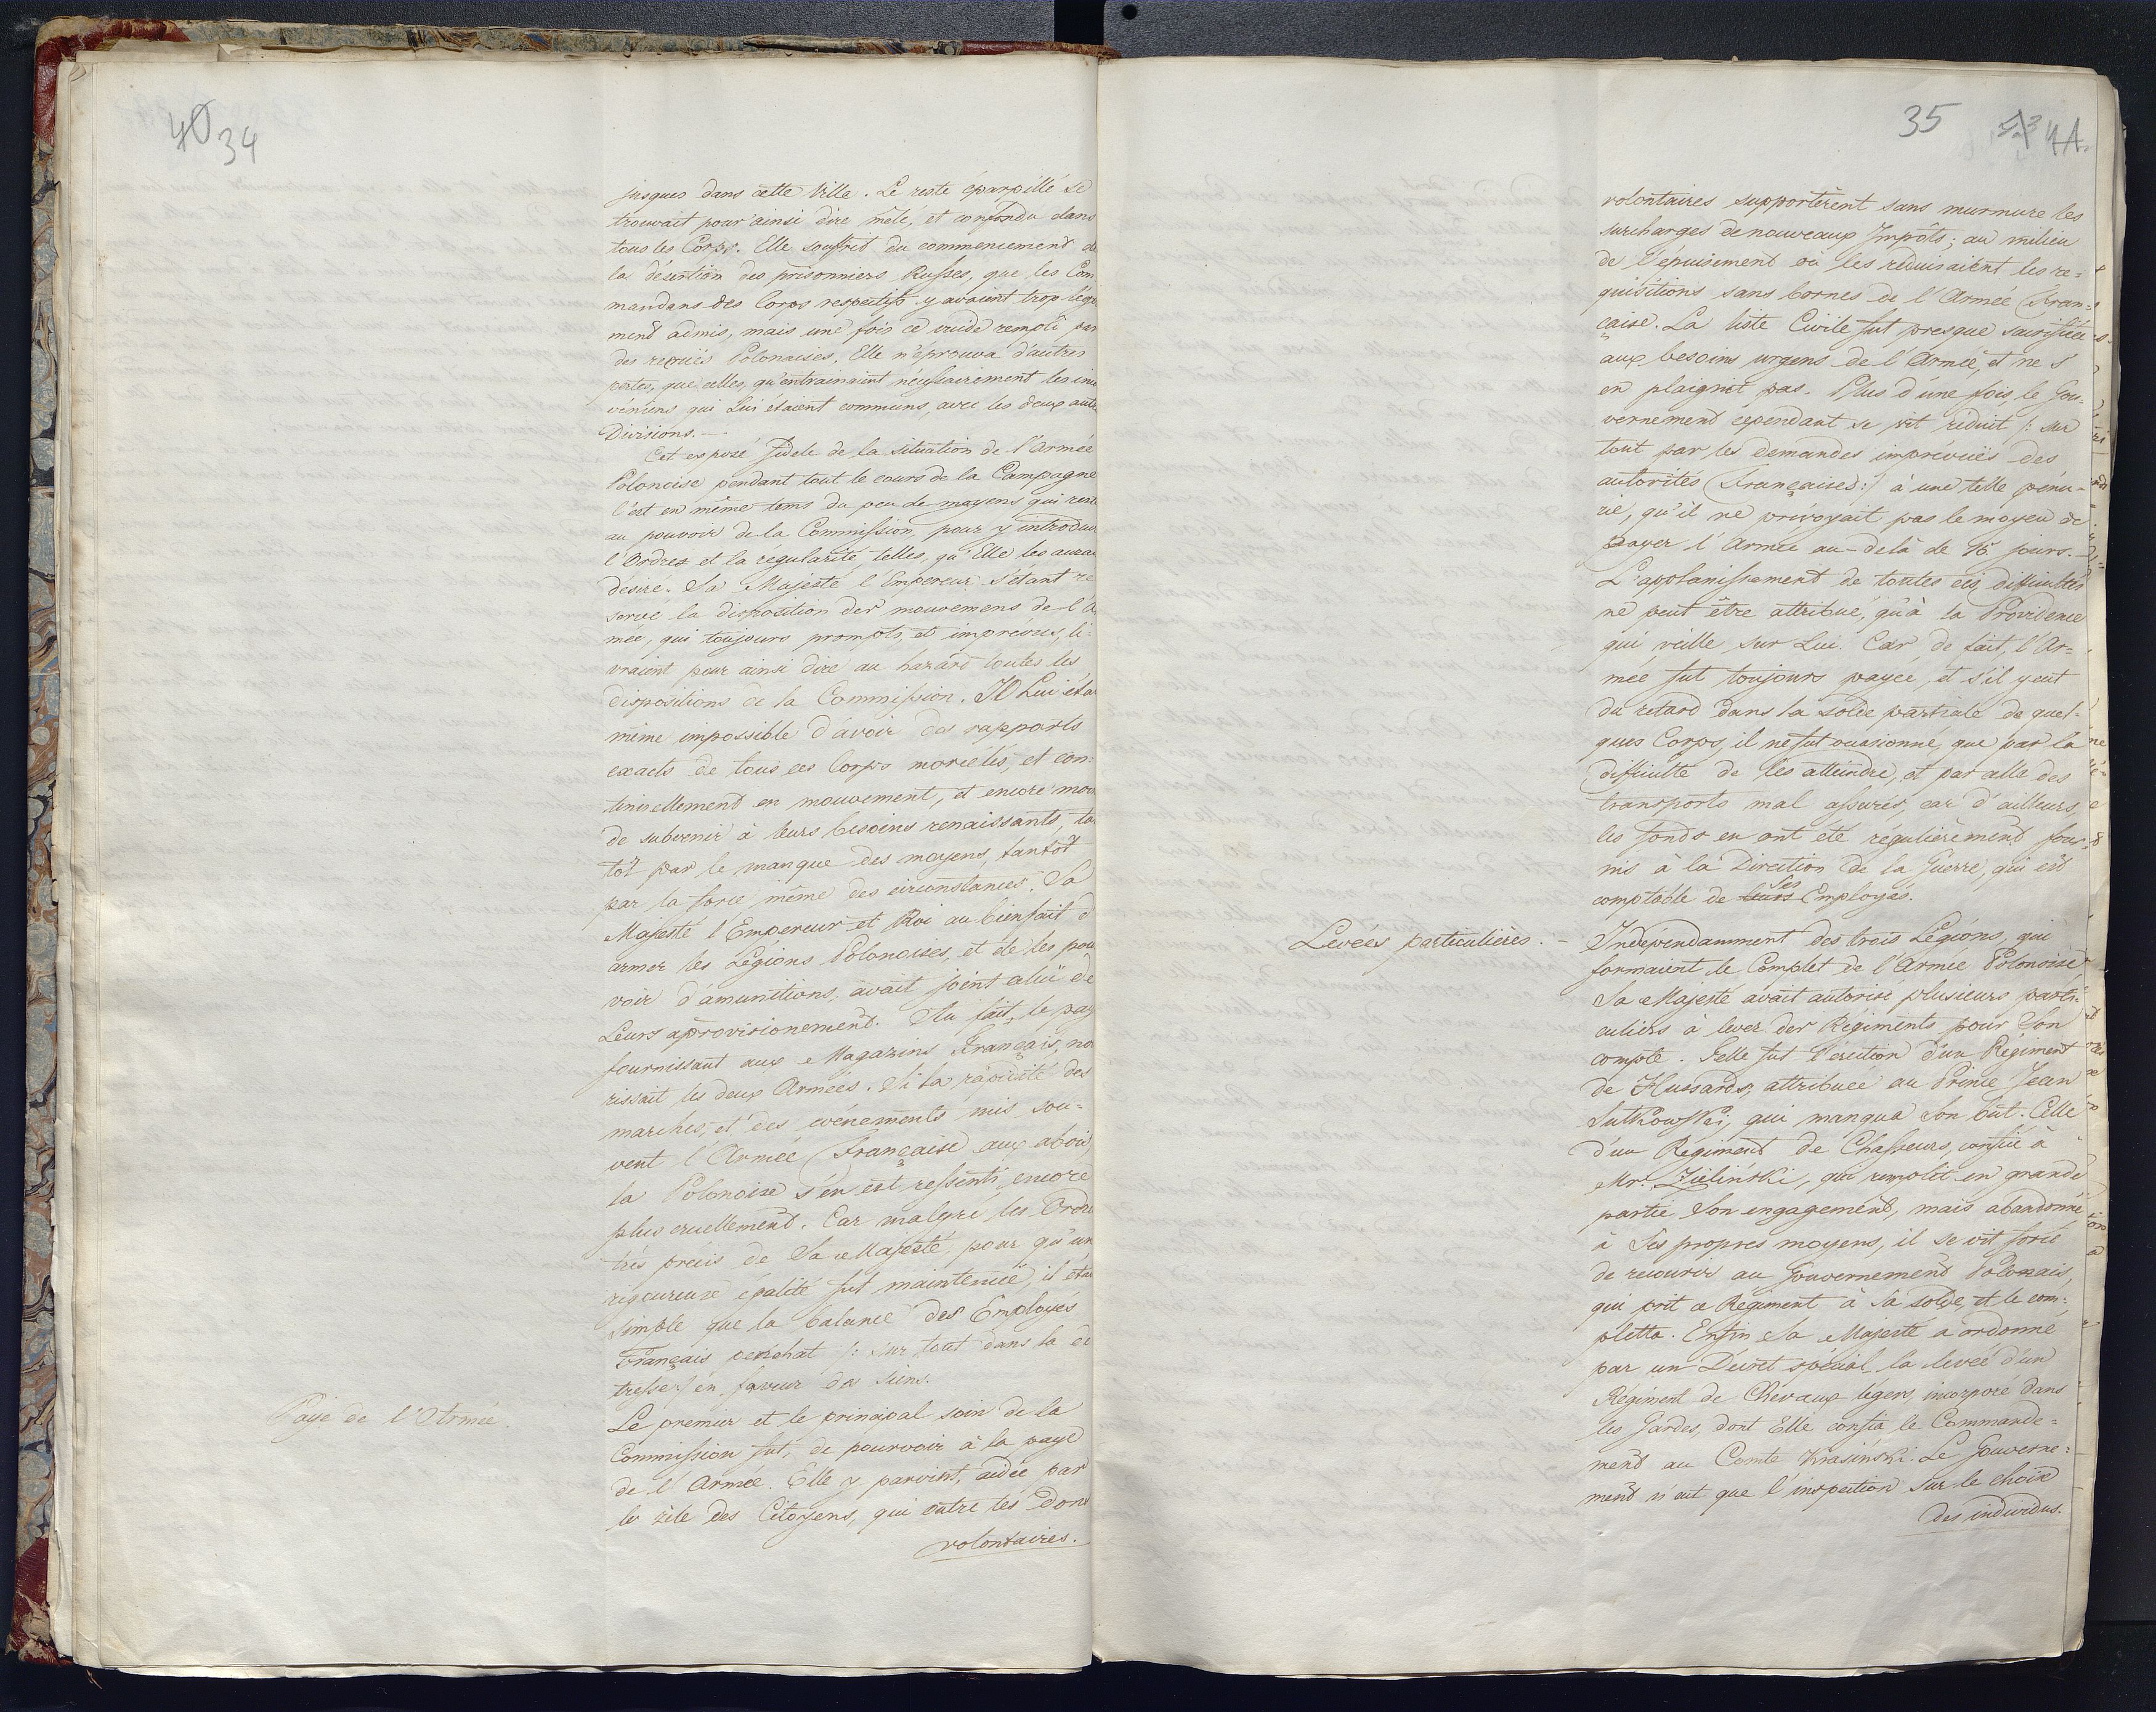 40 34
jusques dans cette Ville. Le reste éparpillé se
trouvait pour ainsi dire mêlé, et confondu dans
tous les Corps. Elle souffrit du commencement de
la désertion des prisonniers Russes, que les Com
mandans des Corps respectifs y avaient trop lége
ment admis, mais une fois ce vuide rempli par
des recrues Polonaises, Elle n'éprouva d'autres
pertes, que celles, qu'entrainaient nécessairement les incon
véniens qui Lui étaient communs, avec les deux autre
Divisions. —
Cet exposé fidele de la situation de l'Armée
Polonoise pendant tout le cours de la Campagne
l'est en même tems du peu de moyens qui reste
au pouvoir de la Commission pour y introduire
l'Ordre et la régularité telles, qu'Elle les aurai
désiré. Sa Majesté l'Empereur s'étant re
servé la disposition des mouvemens de l'Ar
mée, qui toujours prompts, et imprévus, li-
vraient pour ainsi dire au hazard toutes les
dispositions de la Commission. Il Lui était
même impossible d'avoir des rapports
exacts de tous ces Corps morcélés, et con-
tinuellement en mouvement, et encore moin
de subvenir à leurs besoins renaissants, tan
tôt par le manque des moyens, tantôt
par la force même des circonstances. Sa
Majesté l'Empereur et Roi au bienfait d'
armer les Légions Polonoises, et de les pour
voir d'amunitions, avait joint celui de
Leurs aprovisionement. Au fait, le pays
fournissant aux Magazins Français, nou
rissait les deux Armées. Si la rapidité des
marches, et des evénements mis sou-
vent l'Armée Française aux abois,
la Polonoise s'en est ressenti encore
plus cruellement. Car malgré les Ordre
très precis de Sa Majesté, pour qu'une
rigoureuse égalité fut maintenuë, il étai
simple que la balance des Employés
Français penchat /: sur tout dans la dé
tresse :/ en faveur des siens.
Paye de l'Armée.
Le premier et le principal soin de la
Commission fut, de pourvoir à la paye
de l'Armée. Elle y parvint, aidée par
le zèle des Citoyens, qui outre les Dons
volontaires.
35 41.
volontaires supportèrent sans murmure les
surcharges de nouveaux Impôts; au milieu
de l'épuisement où les reduisaient les re=
quisitions sans bornes de l'Armée Fran-
çaise. La liste Civile fut presque sacrifiée
aux besoins urgens de l'Armée, et ne s'
en plaignit pas. Plus d'une fois, le Gou-
vernement cependant se vit réduit /: sur
tout par les demandes imprévües des
autorités Françaises :/ à une telle penu-
rie, qu'il ne prévoyait pas le moyen de
payer l'Armée au-delà de 15 jours. —
L'applanissement de toutes ces difficultés
ne peut être attribué, qu'à la Providence
qui veille sur Lui. Car de fait, l'Ar=
mée fut toujours payée, et s'il y eut
du retard dans la solde partiale de quel-
ques Corps, il ne fut occasionné, que par la
difficulté de les atteindre, et par celle des
transports mal assurés, car d'ailleurs,
les fonds en ont été régulièrement four-
nis à la Direction de la Guerre, qui est
comptable de leurs Ses Employés.
Levées particulières. —
Indépendamment des trois Légions, qui
formaient le Complet de l'Armée Polonoise,
Sa Majesté avait autorisé plusieurs parti-
culiers à lever des Régiments pour Son
compte. Telle fut l'érection d'un Régiment
de Hussards, attribuée au Prince Jean
Sulkowski, qui manqua Son but. Celle
d'un Régiment de Chasseurs, confié à
Mr. Zielinski, qui remplit en grande
partie Son engagement, mais abandonné
à Ses propres moyens, il se vit forcé
de recourir au Gouvernement Polonais,
qui prit ce Régiment à Sa solde, et le com-
pletta. Enfin Sa Majesté a ordonné
par un Décret spécial la levée d'un
Régiment de Chevaux légers, incorporé dans
les Gardes, dont Elle confia le Commande=
ment au Comte Krasinski. Le Gouverne=
ment n'eut que l'inspection sur le choix
des individus.